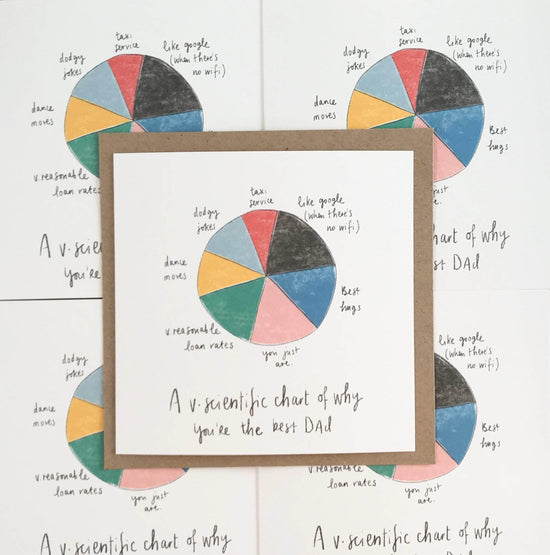 taxi
service
dodgy
jokes
like google
(when there's
no wifi)
dance
moves
v. reasonable
loan rates
A v. scien
You're
taxi
service
dodgy
jokes
like google
(when there's
no wifi)
dance
moves
Best
hugs
just
are.
chart of why
st DAd
taxi
service
dodgy
jokes
like google
(when there's
no wifi)
dance
moves
Best
hugs
v. reasonable
loan rates
you just
are.
A v. scientific chart of why
You're the best DAd
dodgy
jokes
dance
moves
v. reasonable
loan rates
you just
are.
A v. scientific chart of why
like google
(when there's
no wifi)
Best
hugs
v. reasonable
loan rates
you just
are.
A v. scientific chart of why